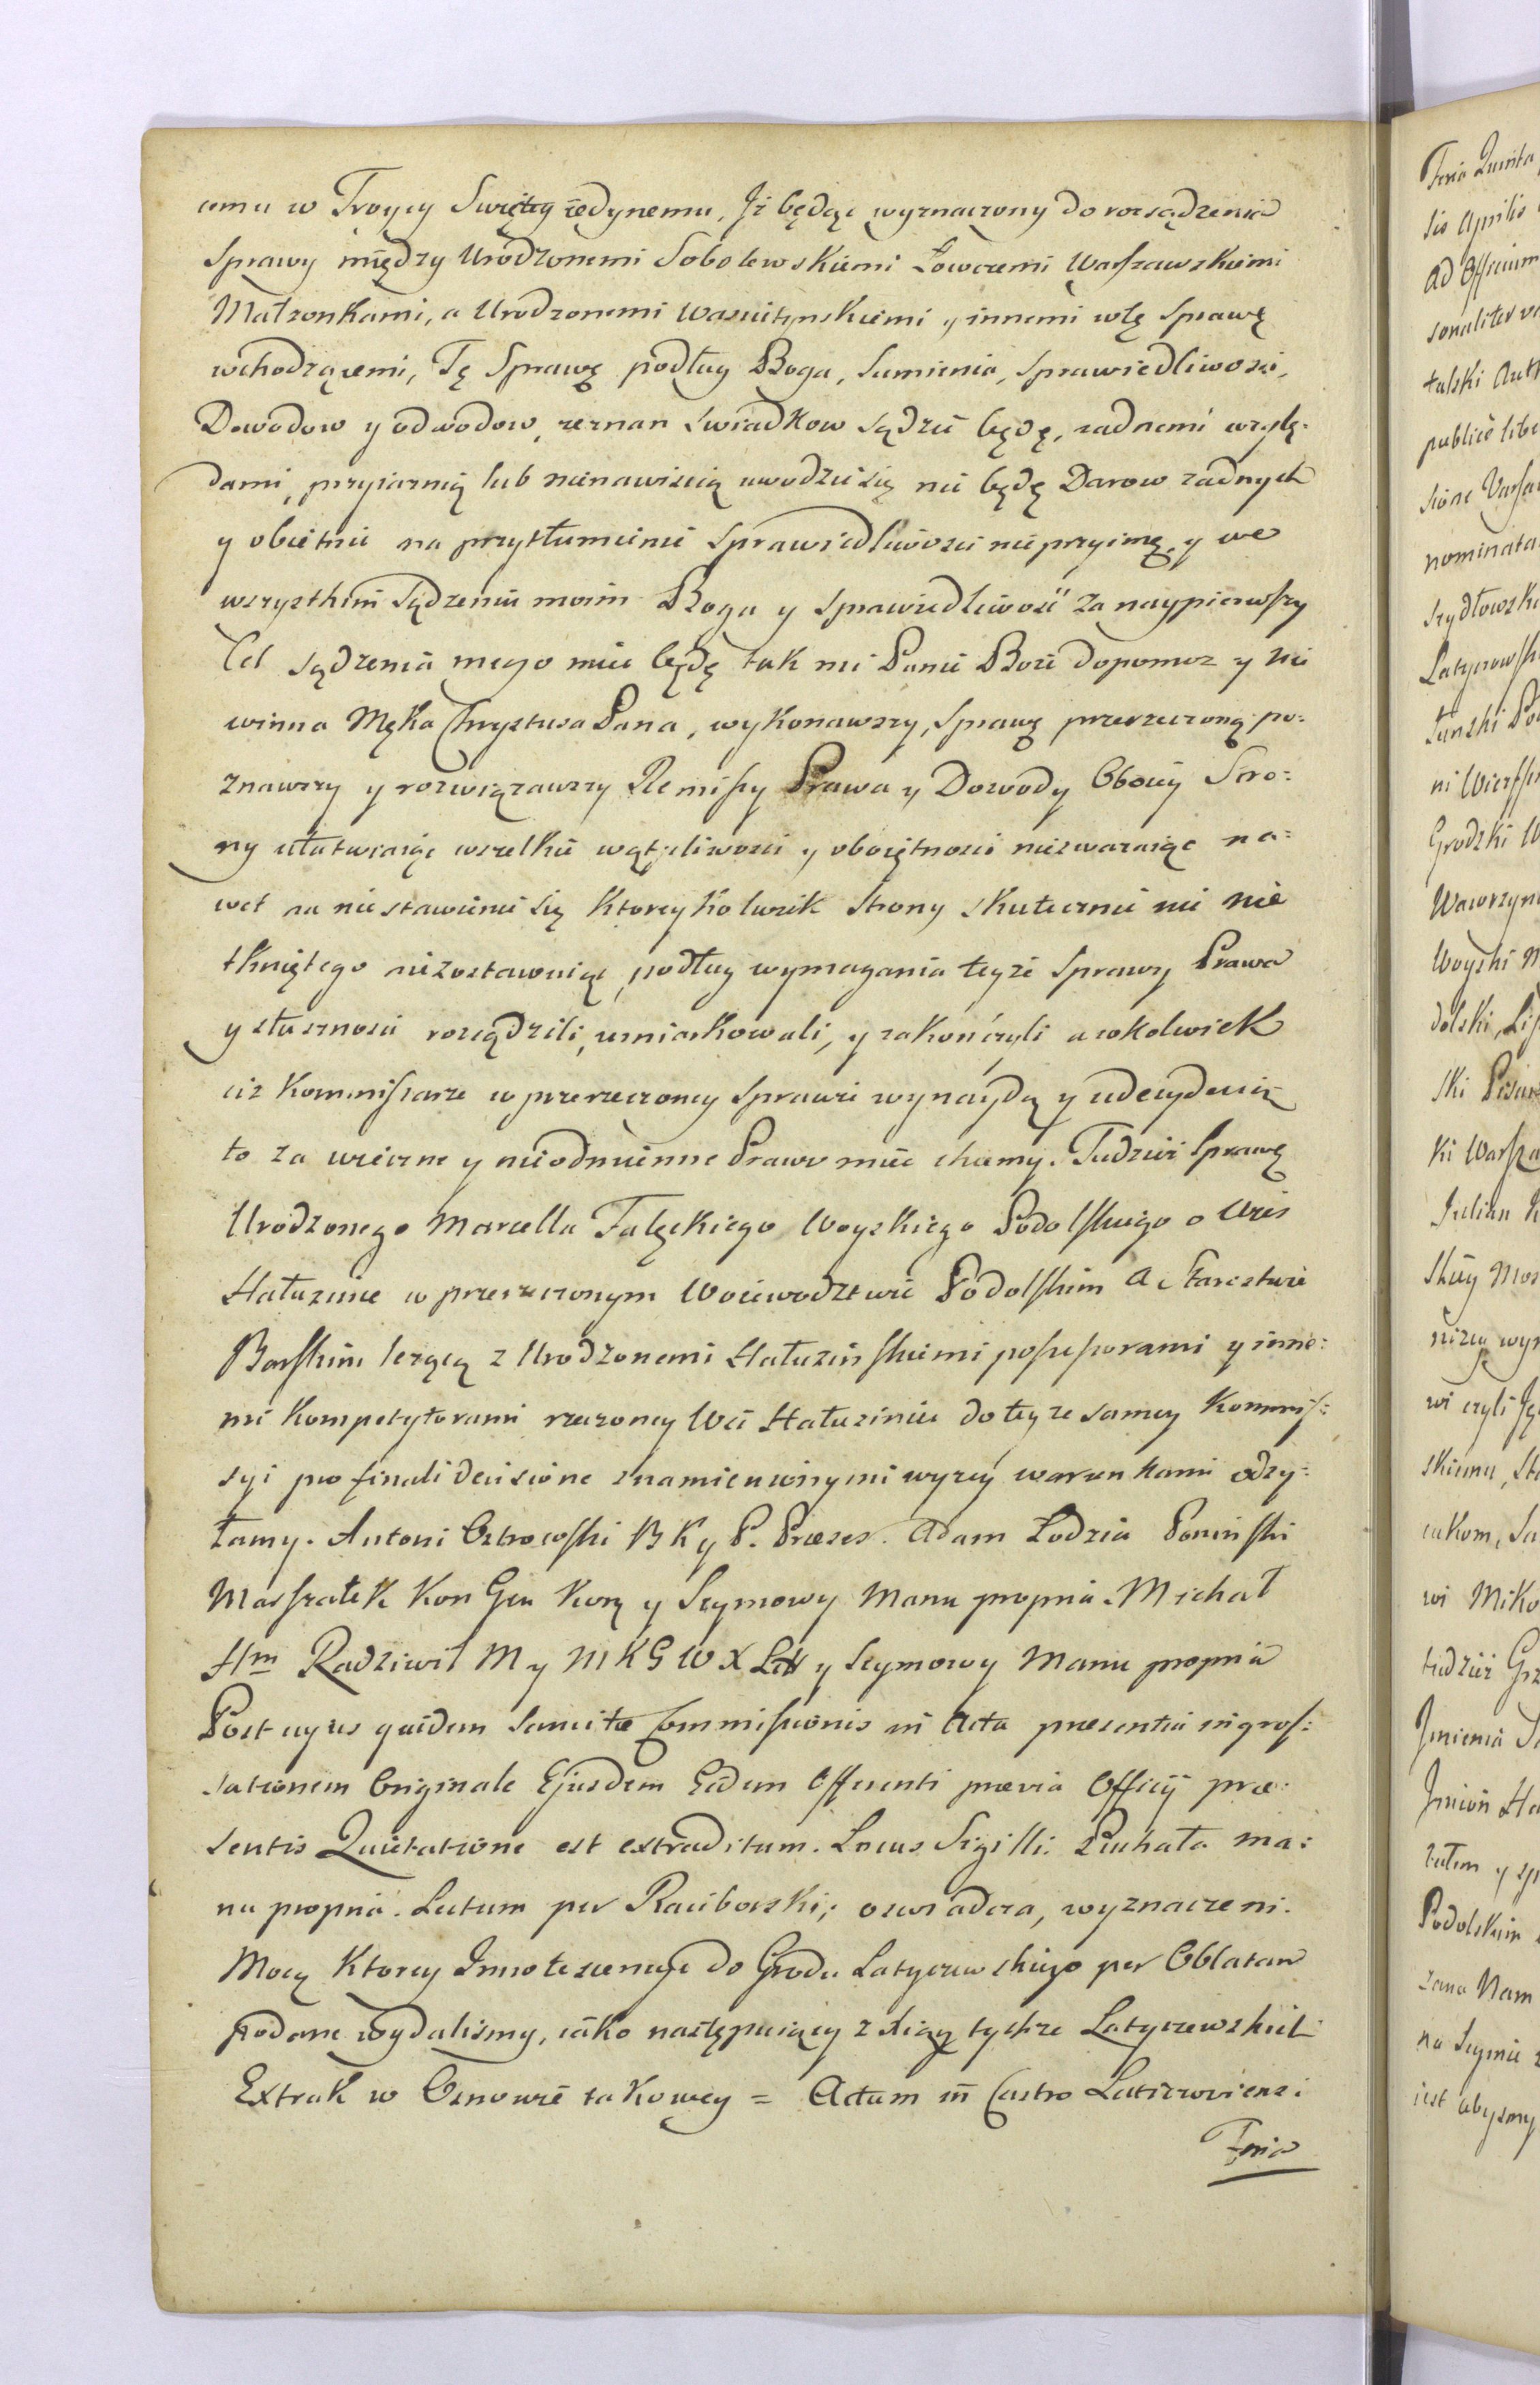 cemu w Troycy Swiętey iedynemu, Iż będąc wyznaczony do rozsądzenia
Sprawy między Urodzonemi Sobolewskiemi Łowczemi Warszawskiemi
Małzonkami, a Urodzonemi Wasiutynskiemi y innemi wtę Sprawę
wchodzącemi, Tę Sprawę podług Boga, Sumienia, Sprawiedliwosci,
Dowodow y odwodow, zeznan Swiadkow sądzić będę, zadnemi wzglę:
dami, przyiaznią lub nienawiscią uwodzić się nie będę Darow zadnych
y obietnic na przytłumienie Sprawiedliwosci nieprzyimę, y we
wszystkim Sądzeniu moim Boga y Sprawiedliwość za naypierwszy
Cel sądzenia mego mieć będę tak mi Panie Boże dopomoz y nie
winna Męka Chrystusa Pana, wykonawszy, Sprawę przerzeczoną po:
znawszy y rozwiązawszy Remissy Prawa y Dowody Oboiey Stro:
ny ułatwiaiąc wszelkie wątpliwosci y oboiętnosci niezwazaiąc na:
wet na nie stawienie się ktoreykolwiek Strony skutecznie nic nie
tkniętego niezostawuiąc, podług wymagania teyże Sprawy Prawa
y słusznosci rozsądzili, umiarkowali, y zakończyli a cokolwiek
ciz Kommissarze w przerzeczoney Sprawie wynaydą y udecyduią
to za wieczne y nieodmienne Prawo mieć chcemy. Tudzież Sprawę
Urodzonego Marcella Fałęckiego Woyskiego Podolskiego o Wieś
Hałuzince w przerzeczonym Woiewodztwie Podolskim a Starostwie
Barskim lezącą z Urodzonemi Hałuzińskiemi possessorami y inne:
mi Kompetytorami rzeczoney Wsi Hałuziniec do teyze samey Kommis:
syi pro finali decisione znamienionymi wyzey warunkami odsy:
łamy. Antoni Ostrowski B K y P. Præses. Adam Łodzia Poninski
Marszałek Kon Gen Kory y Seymowy Manu propria. Michał
Hm Radziwił M y M K G W X Litt y Seymowy Manu propria
Post cujus quidem Sancitæ Commissionis in Acta præsentia ingros:
sationem Originale Ejusdem Eidem Offerenti prævia Officij præ:
sentis Quietatione est extraditum. Locus Sigilli. Piuhała ma:
nu propria. Lectum per Raciborski; oswiadcza, wyznaczeni.
Mocą Ktorey Innotescencye do Grodu Latyczewskiego per Oblatam
podane wydalismy, iako następuiący z xiąg tychze Latyczewskich
Extrakt w Osnowie takowey = Actum in Castro Laticzoviensi
Feria
Feria Quinta
sis Aprilis
Ad Officium
sonaliter
talski
publicè
sione
nominata
Szydłowsk
Latyczowsk
ni
Grodzki
Wawrzyn
Woyski
dolski
ski Pisarz
ki Warsza
Julian
skiey
nizey wy
wi czyli
skiemu
wi Miko
tudzież
Imienia
Imion
Podolskim
zana Nam
na Seymie
iest abysmy